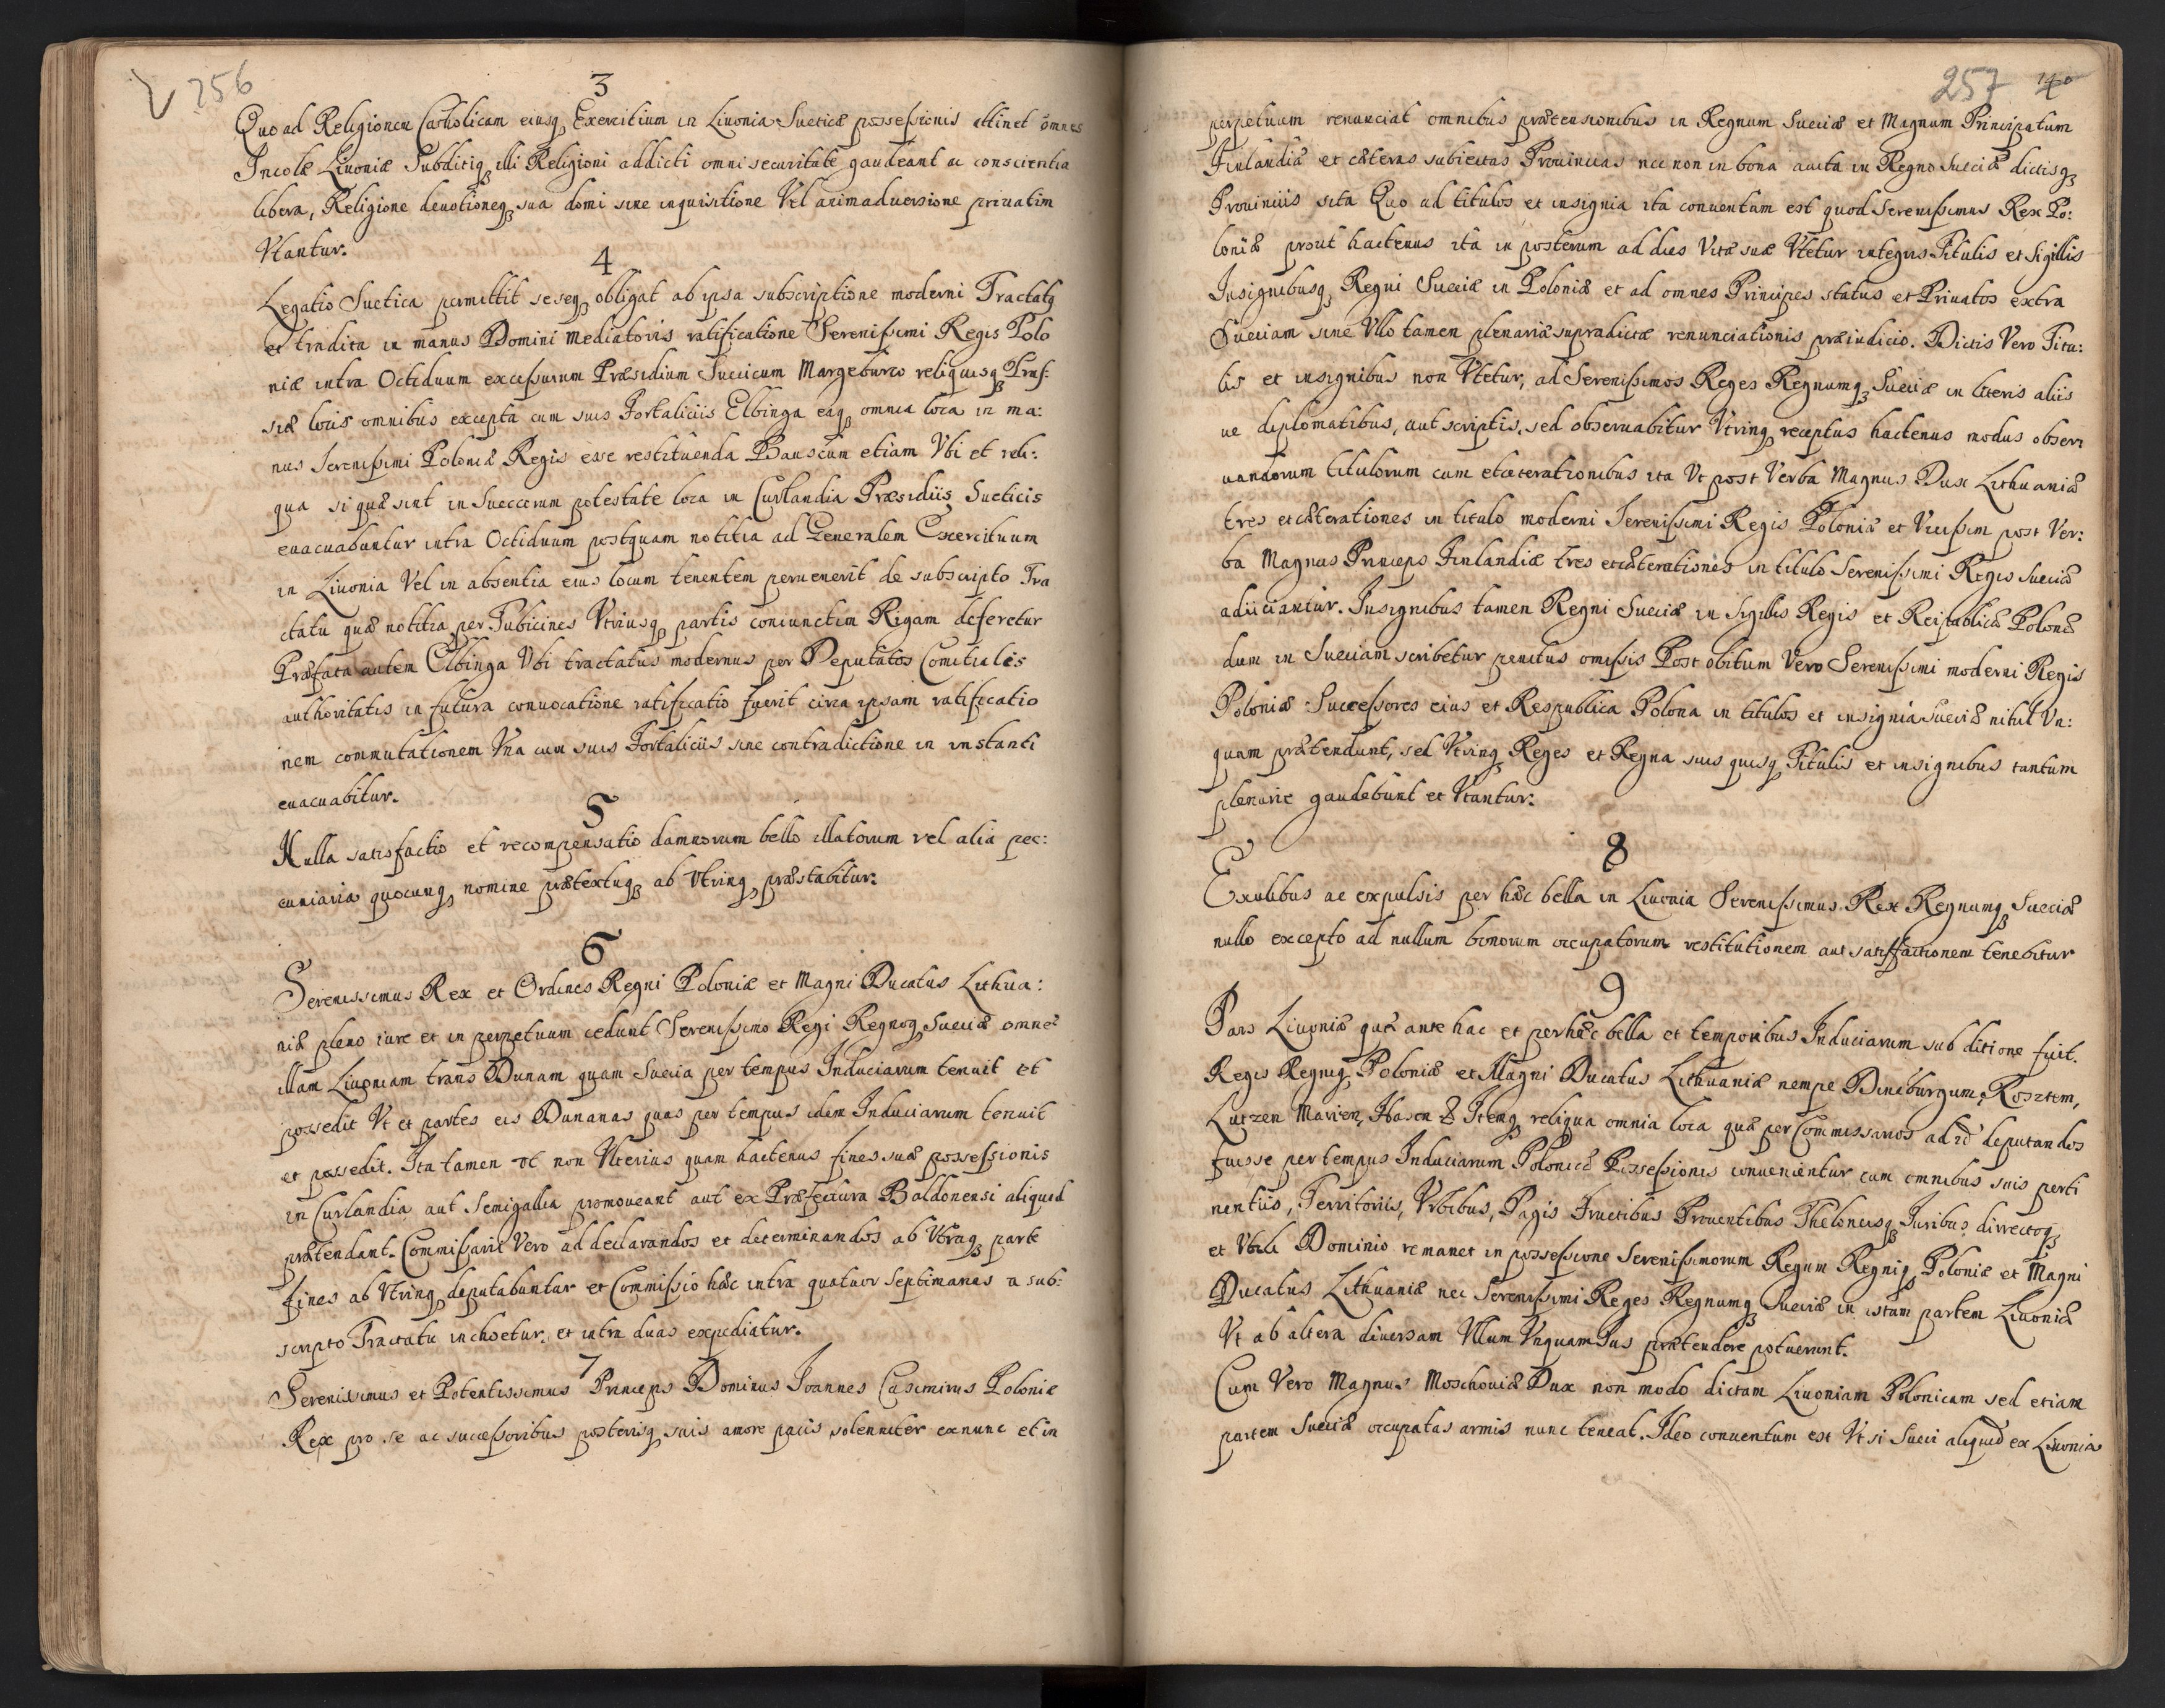 256
3
Quo ad Religionem Catholicam eiusq; Exercitium in Liuonia Sueticæ possessionis attinet omnes
Incolæ Liuoniæ Subditiq; illi Religioni addicti omni securitate gaudeant ac conscientia
libera, Religione deuotioneq; sua domi sine inquisitione Vel animaduersione priuatim
Vtantur.
4
Legatio Suetica permittit seseq; obligat ab ipsa subscriptione moderni Tractatq
et tradita in manus Domini Mediatoris ratificatione Serenissimi Regis Polo
niæ intra Octiduum excessurum Præsidium Suecicum Margeburco reliquisq; Prus:
siæ locis omnibus excepta cum suis Fortaliciis Elbinga eaq; omnia loca in ma:
nus Serenissimi Poloniæ Regis esse restituenda Bauscum etiam Vbi et reli:
qua si quæ sint in Sueccorum potestate loca in Curlandia Præsidiis Sueticis
euacuabuntur intra Octiduum postquam notitia ad Generalem Exercituum
in Liuonia Vel in absentia eius locum tenentem peruenerit de subscripto Tra
ctatu quæ notitia per Tubicines Vtriusq; partis coniunctim Rigam deferetur
Præfata autem Elbinga Vbi tractatus modernus per Deputatos Comitiales
authoritatis in futura conuocatione ratificatio fuerit circa ipsam ratificatio
nem commutationem Vna cum suis Fortaliciis sine contradictione in instanti
euacuabitur.
5
Nulla satisfactio et recompensatio damnorum bello illatorum vel alia pec:
cuniaria quocunq; nomine prætextuq; ab Vtrinq; præstabitur.
6
Serenissimus Rex et Ordines Regni Poloniæ et Magni Ducatus Lithua:
niæ pleno iure et in perpetuum cedunt Serenissimo Regi Regnoq; Sueciæ omnes
illam Liuoniam trans Dunam quam Suecia per tempus Induciarum tenuit et
possedit Vt et partes eis Dunanas quas per tempus idem Induciarum tenuit
et possedit. Ita tamen vt non Vlterius quam hactenus fines suæ possessionis
in Curlandia aut Semigallia promoueant aut ex Præfectura Baldonensi aliquid
prætendant. Commissarii Vero ad declarandos et determinandos ab Vtraq; parte
fines ab Vtrinq; deputabuntur et Commissio hæc intra quatuor Septimanas a sub:
scripto Tractatu inchoetur et intra duas expediatur.
7
Serenissimus et Potentissimus Princeps Dominus Ioannes Casimirus Poloniæ
Rex pro se ac successoribus posterisq; suis amore pacis solenniter exnunc et in
257
140
perpetuum renunciat omnibus prætensionibus in Regnum Sueciæ et Magnum Principatum
Finlandiæ et cæteras subiectas Prouincias nec non in bona auita in Regno Sueciæ dictisq;
Prouinciis sita Quo ad titulos et insignia ita conuentum est quod Serenissimus Rex Po:
loniæ prout hactenus ita in posterum ad dies Vitæ suæ Vtetur integris Titulis et Sigillis
Insignibusq; Regni Sueciæ in Polonia et ad omnes Principes status et Priuatos extra
Sueciam sine Vllo tamen plenariæ supradictæ renunciationis præiudicio. Dictis Vero Titu:
lis et insignibus non Vtetur, ad Serenissimos Reges Regnumq; Sueciæ in literis aliis
ue diplomatibus, aut scriptis, sed obseruabitur Vtrinq; receptus hactenus modus obser
uandorum titulorum cum etcæterationibus ita Vt post Verba Magnus Dux Lithuaniæ
tres etcæterationes in titulo moderni Serenissimi Regis Poloniæ et Vicissim post Ver:
ba Magnus Princeps Finlandiæ tres etcæterationes in titulo Serenissimi Regis Sueciæ
adiiciantur. Insignibus tamen Regni Sueciæ in Sigillis Regis et Reipublicæ Polonæ
dum in Sueciam scribetur penitus omissis Post obitum Vero Serenissimi moderni Regis
Poloniæ Successores eius et Respublica Polona in titulos et insignia Sueciæ nihil Vn:
quam prætendunt, sed Vtrinq; Reges et Regna suis quisq; Titulis et insignibus tantum
plenarie gaudebunt et Vtantur.
8
Exulibus ac expulsis per hæc bella in Liuonia Serenissimus Rex Regnumq; Sueciæ
nullo excepto ad nullum bonorum occupatorum restitutionem aut satisfactionem tenebitur
9
Pars Liuoniæ quæ ante hac et per hæc bella et temporibus Induciarum sub ditione fuit.
Regis Regniq; Poloniæ et Magni Ducatus Lithuaniæ nempe Dineburgum, Rosztem,
Lutzen Marien, Hasen & Itemq; reliqua omnia loca quæ per Commissarios ad id deputandos
fuisse per tempus Induciarum Polonicæ Possessionis inuenientur cum omnibus suis perti
nentiis, Territoriis, Vrbibus, Pagis Fructibus Prouentibus Theloneisq; Iuribus dirrectoq;
et Vtili Dominio remanet in possessione Serenissimorum Regum Regniq; Poloniæ et Magni
Ducatus Lithuaniæ nec Serenissimi Reges Regnumq; Sueciæ in istam partem Liuoniæ
Vt ab altera diuersam Vllum Vnquam Ius prætendere potuerunt.
Cum Vero Magnus Moschouiæ Dux non modo dictam Liuoniam Polonicam sed etiam
partem Sueciæ occupatas armis nunc teneat. Ideo conuentum est Vt si Sueci aliquid ex Liuonia